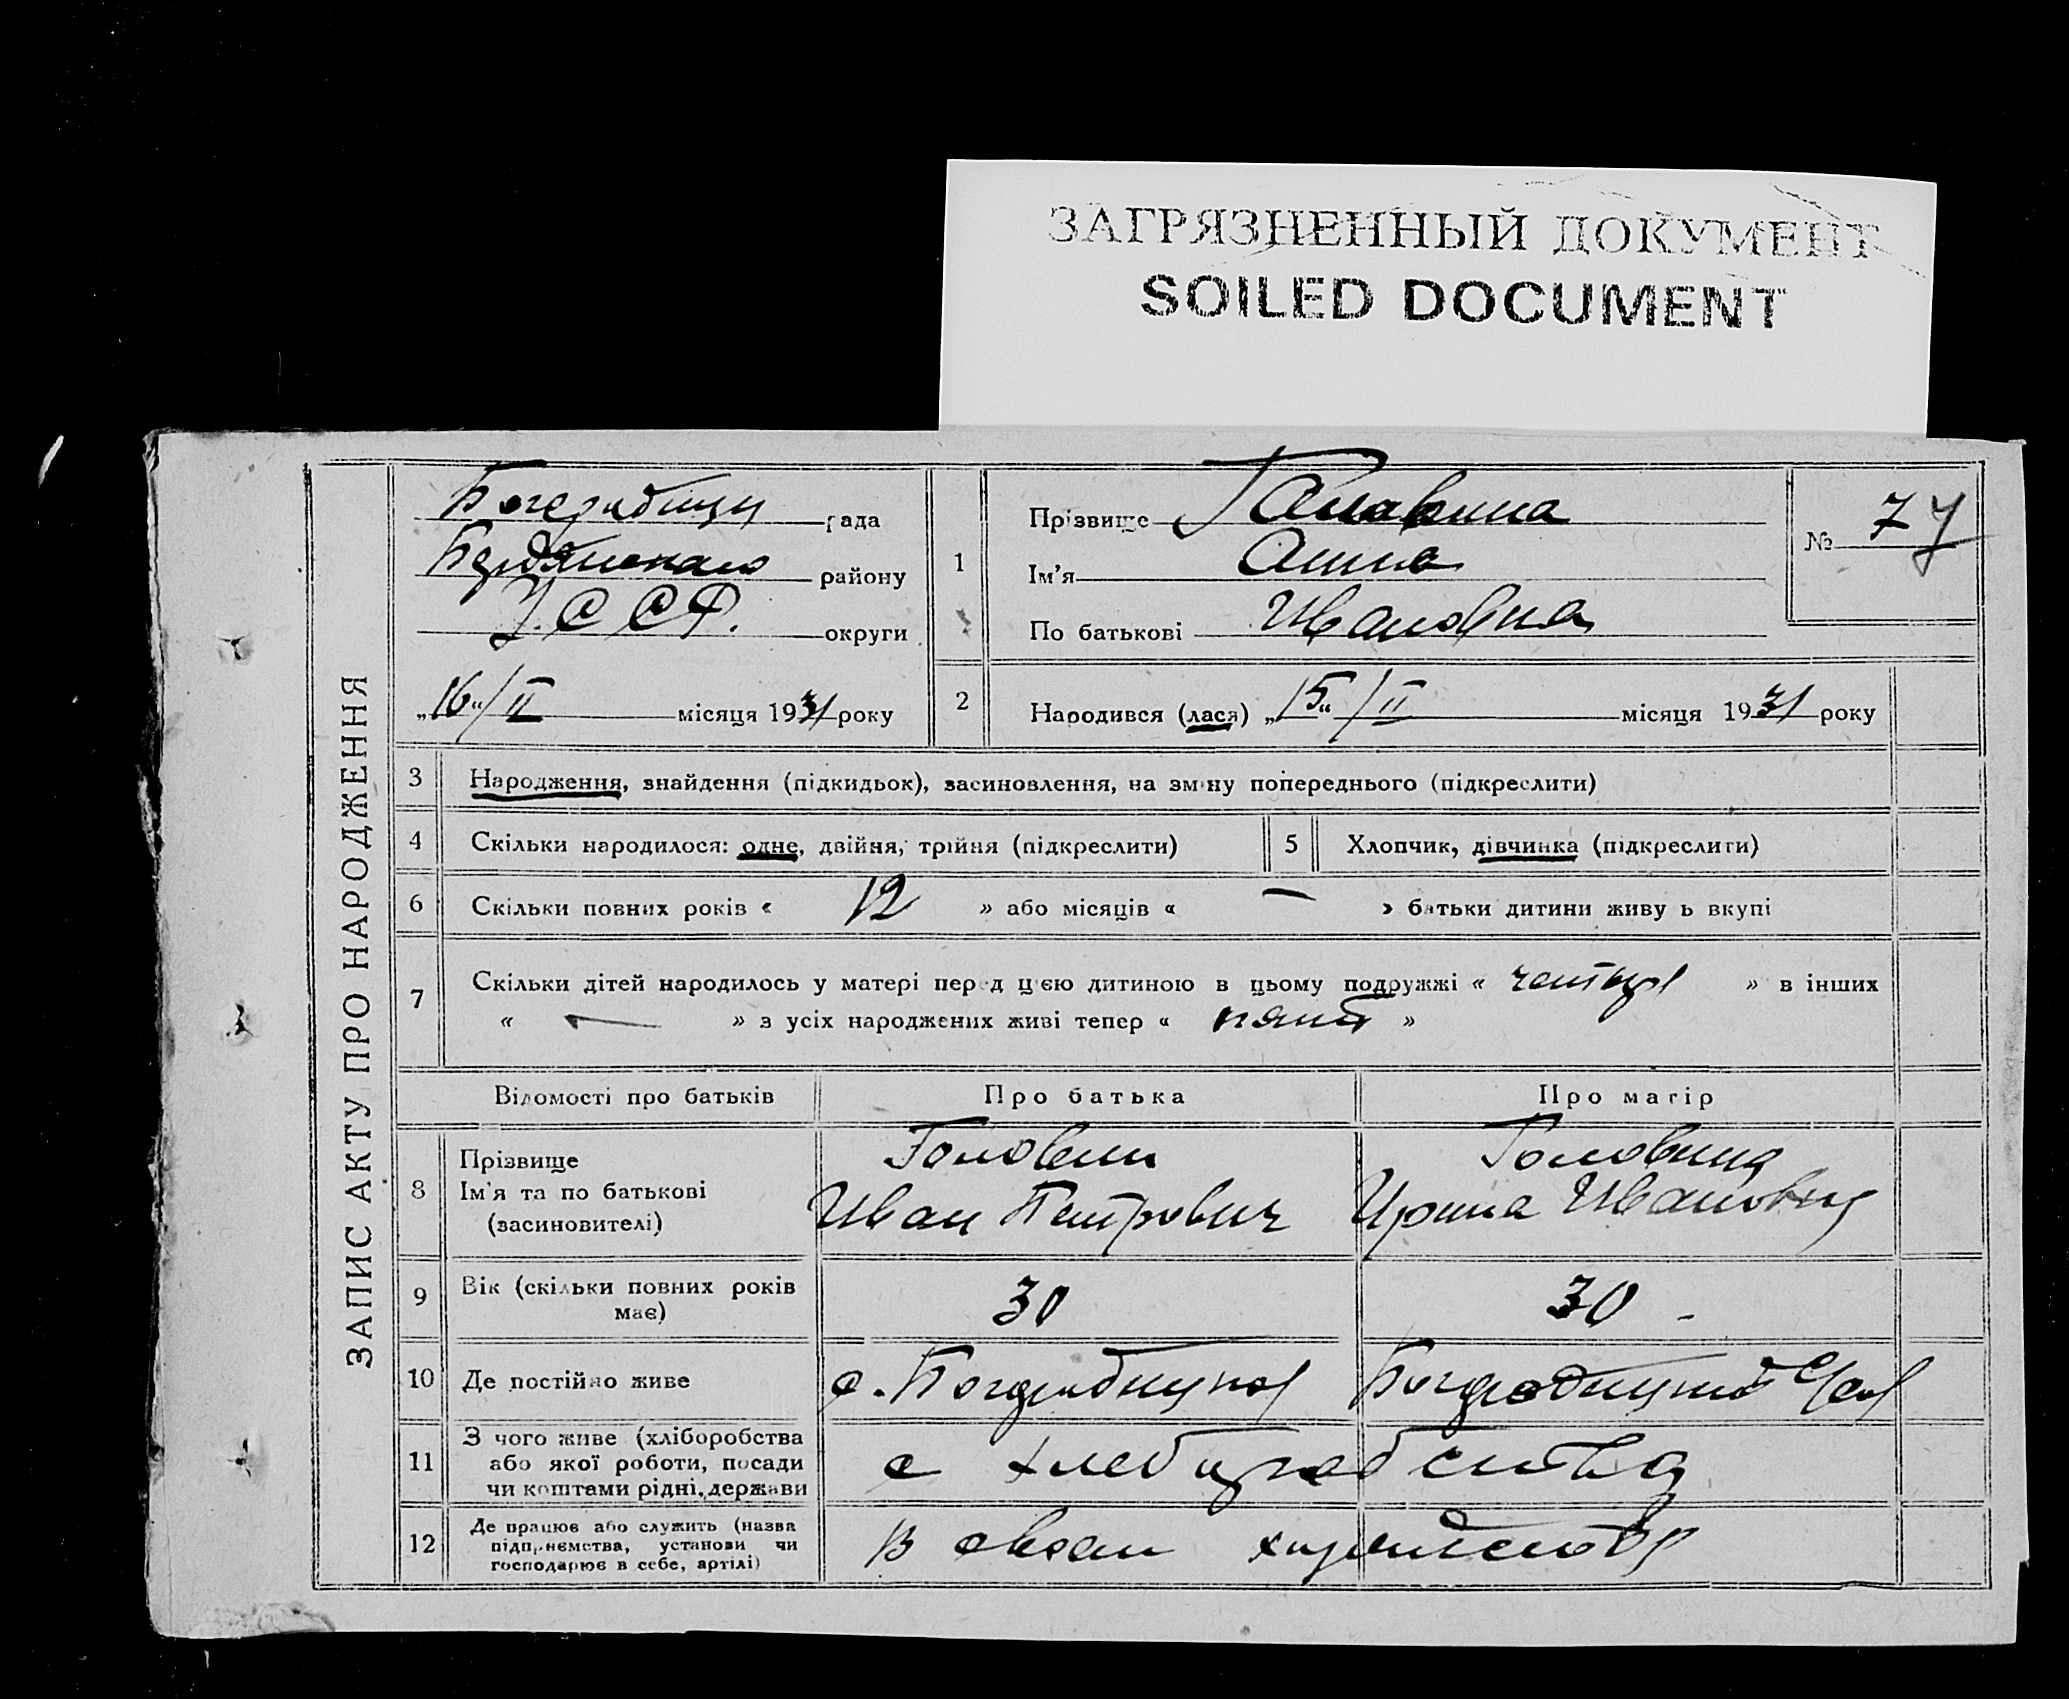 ЗАГРЯЗНЕННЫЙ ДОКУМЕНТ
SOILED DOCUMENT
ЗАПИС АКТУ ПРО НАРОДЖЕННЯ
рада
району
У.С.С.Р. округи
„16“/II місяця 1931 року
1
Прізвище Галавина
Ім'я Анна
По батькові Ивановна
№ 77
2 Народився (лася) „15“/II місяця 1931 року
3 Народження, знайдення (підкидьок), засиновлення, на зміну попереднього (підкреслити)
4 Скільки народилося: одне, двійня, трійня (підкреслити) 5 Хлопчик, дівчинка (підкреслити)
6 Скільки повних років « 12 » або місяців « — » батьки дитини живуть вкупі
7 Скільки дітей народилось у матері перед цією дитиною в цьому подружжі « четыри » в інших
« — » з усіх народжених живі тепер « пять »
Відомості про батьків Про батька Про матір
8 Прізвище Головин Головина
Ім'я та по батькові Иван Петрович Ирина Ивановна
(засиновителі)
9 Вік (скільки повних років має) 30 30 -
10 Де постійно живе с.
11 З чого живе (хліборобства
або якої роботи, посади
чи коштами рідні, держави
с хлеборобства
12 Де працює або служить (назва
підприємства, установи чи
господарює в себе, артілі)
В своем